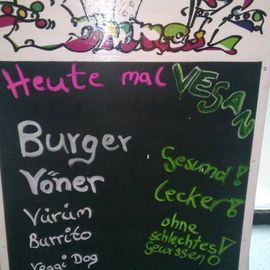 Heute mal VEGAN
Burger
Yöner
Yürüm
Burrito
Veggi Dog
Gesund!
Lecker!
ohne
schlechtes
Gewissen!